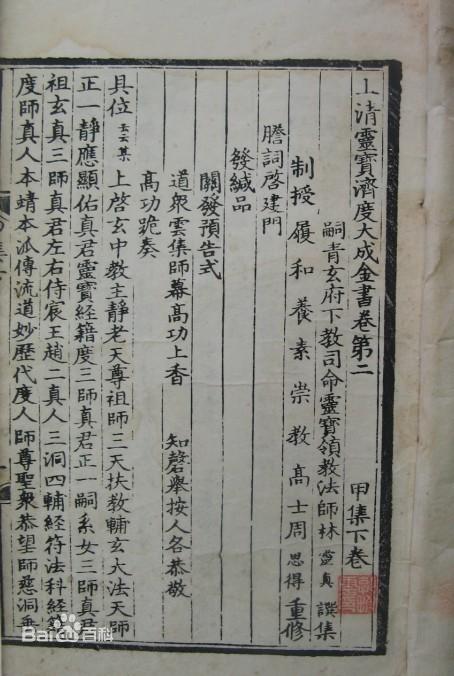 上清靈寶濟度大成金書卷第二 甲集下卷
嗣青玄府下教司命靈寶領教法師林靈真譔集
制授履和養素崇教高士周思得重修
謄詞啓建門
發緘品
關發預告式
道衆雲集師幕高功上香 知磬舉按人各恭敬
高功跪奏
具位 某 上啓玄中教主靜老天尊祖師三天扶教輔玄大法天師
正一靜應顯佑真君靈寶經籍度三師真君正一嗣系女三師真君
祖玄真三師真君左右侍宸王趙二真人三洞四輔經符法科經籙
度師真人本靖本派傳流道妙歷代度人師尊聖衆恭望師慈洞垂
Baidu百科